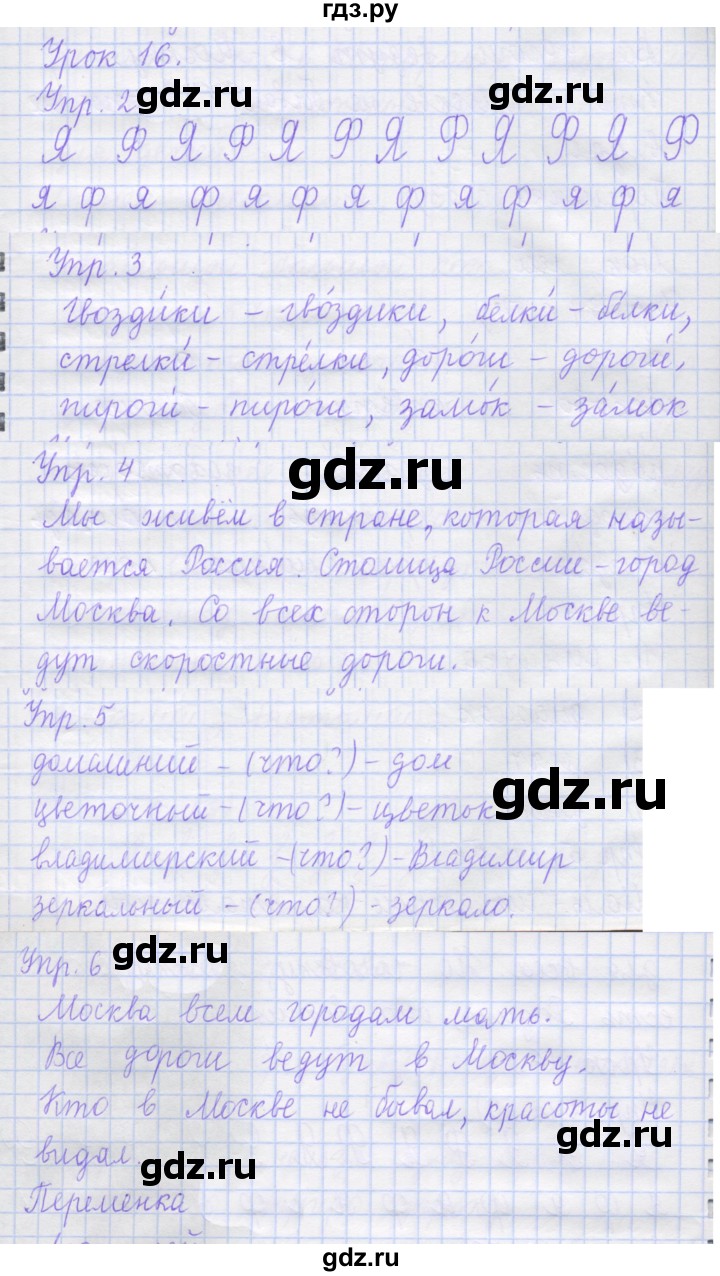 гдз.ру
Урок 16.
Упр. 2 gdz.ru gdz.ru
Я Ф Я Ф Я Ф Я Ф Я Ф Я Ф
я ф я ф я ф я ф я ф я ф я
Упр. 3
Гвозди́ки – гво́здики, белки́ – бе́лки,
стрелки́ – стре́лки, доро́ги – дороги́,
пироги́ – пиро́ги, замо́к – за́мок
Упр. 4 gdz.ru
Мы живём в стране, которая назы-
вается Россия. Столица России – город
Москва. Со всех сторон к Москве ве-
дут скоростные дороги.
Упр. 5
домашний – (что?) – дом
цветочный – (что?) – цветок gdz.ru
владимирский – (что?) – Владимир
зеркальный – (что?) – зеркало.
Упр. 6 gdz.ru
Москва всем городам мать.
Все дороги ведут в Москву.
Кто в Москве не бывал, красоты не
видал. gdz.ru gdz.ru
Переменка
gdz.ru